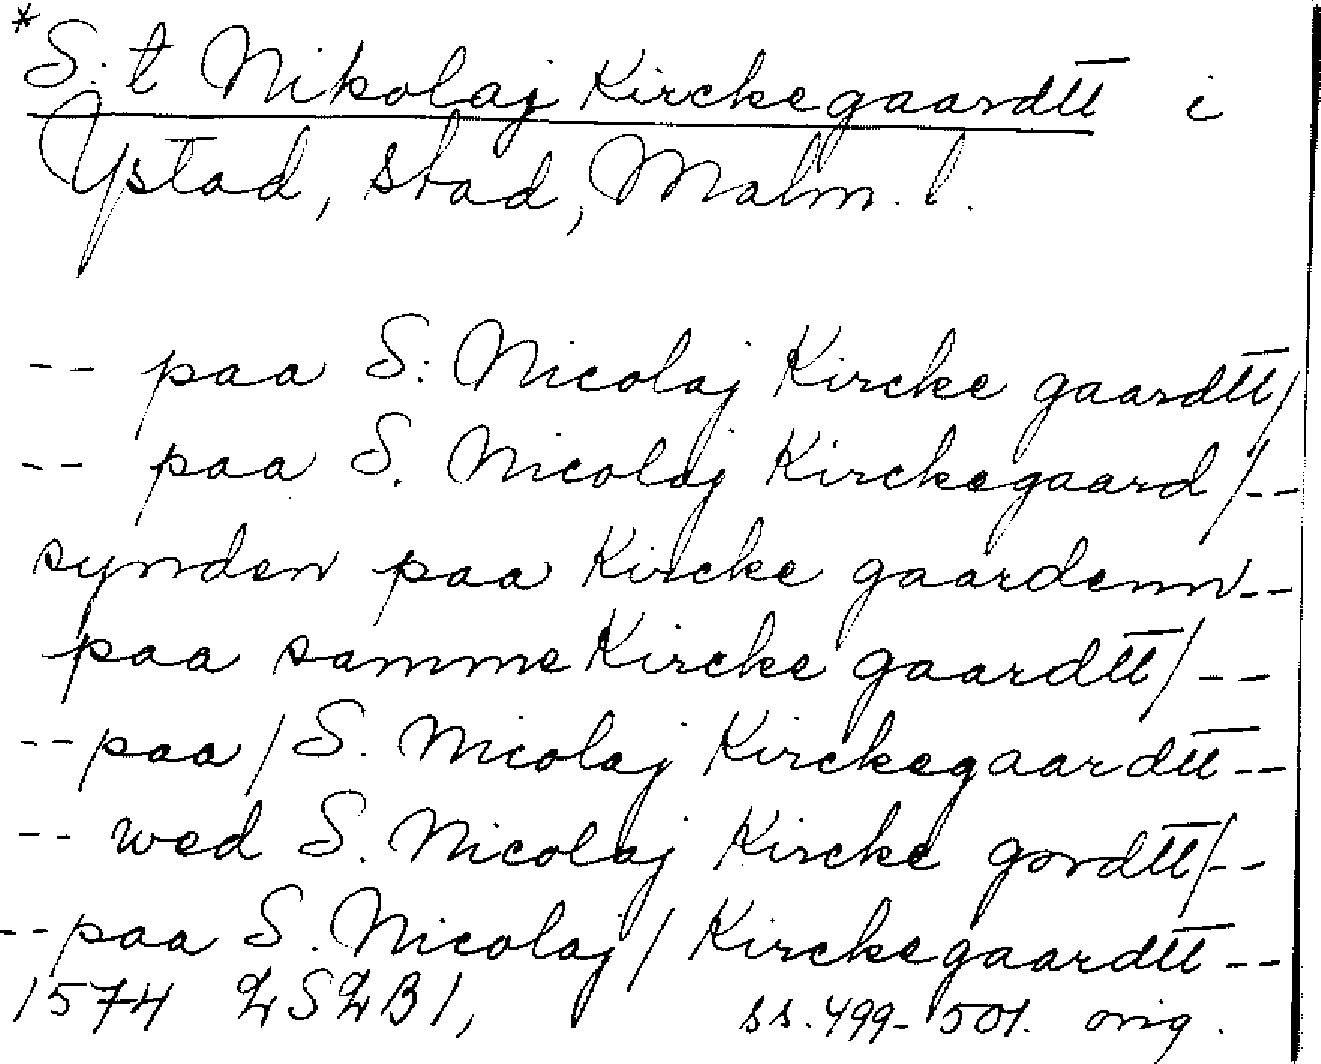 *S:t Nikolaj Kirckegaardtt i
Ystad, stad, Malm. l.
-- paa S: Nicolaj Kircke gaardtt/
-- paa S. Nicolaj Kirckegaard/--
synden paa Kircke gaardenn--
paa samme Kircke gaardtt/--
-- paa/S. Nicolaj Kirckegaardtt--
-- wed S. Nicolaj Kircke gordtt/--
-- paa S. Nicolaj/Kirckegaardtt--
1574 LSLB1, ss. 499-501. orig.